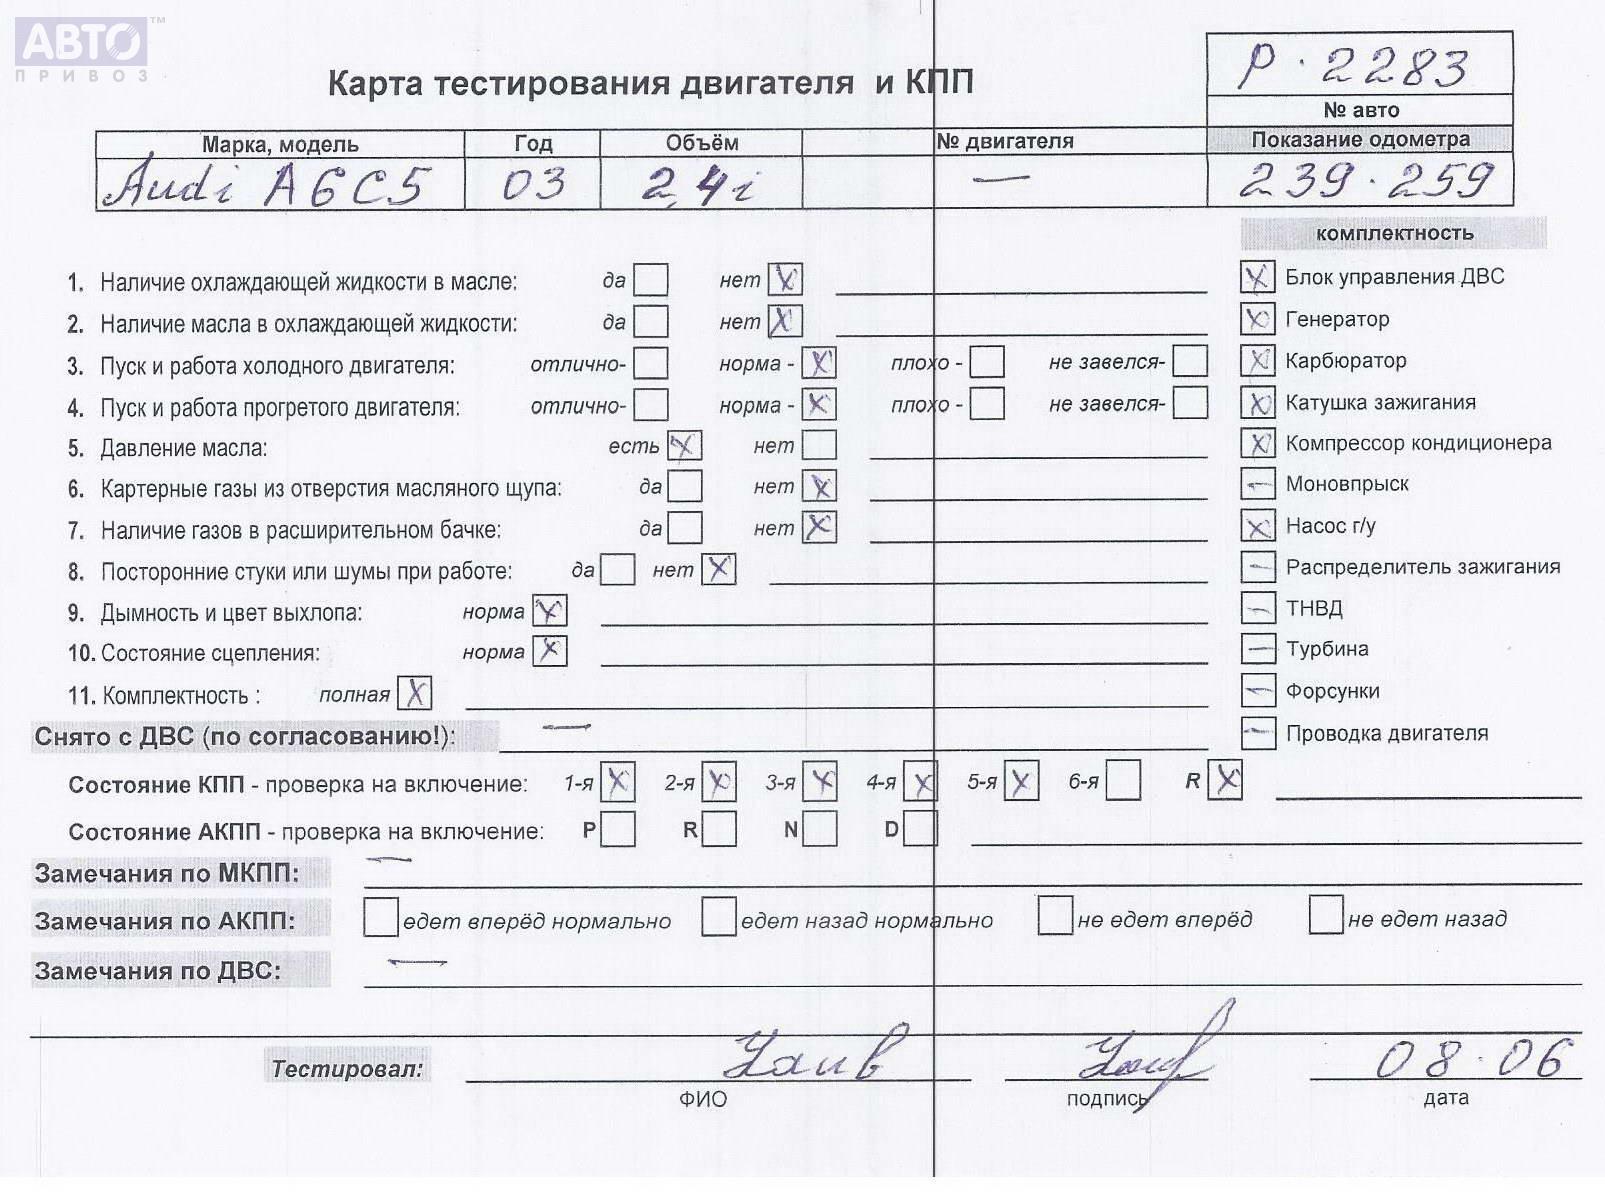 АВТО™
ПРИВОЗ
Карта тестирования двигателя и КПП
P · 2283
№ авто
Марка, модель Год Объём № двигателя Показание одометра
Audi A6C5 03 2,4i — 239 · 259
комплектность
1. Наличие охлаждающей жидкости в масле: да нет X
Блок управления ДВС X
2. Наличие масла в охлаждающей жидкости: да нет X
Генератор X
3. Пуск и работа холодного двигателя: отлично- норма - X плохо - не завелся-
Карбюратор X
4. Пуск и работа прогретого двигателя: отлично- норма - X плохо - не завелся-
Катушка зажигания X
5. Давление масла: есть X нет
Компрессор кондиционера X
6. Картерные газы из отверстия масляного щупа: да нет X
Моновпрыск —
7. Наличие газов в расширительном бачке: да нет X
Насос г/у X
8. Посторонние стуки или шумы при работе: да нет X
Распределитель зажигания —
9. Дымность и цвет выхлопа: норма X
ТНВД —
10. Состояние сцепления: норма X
Турбина —
11. Комплектность : полная X
Форсунки —
Снято с ДВС (по согласованию!): —
Проводка двигателя —
Состояние КПП - проверка на включение: 1-я X 2-я X 3-я X 4-я X 5-я X 6-я R X
Состояние АКПП - проверка на включение: P R N D
Замечания по МКПП: —
Замечания по АКПП: едет вперёд нормально едет назад нормально не едет вперёд не едет назад
Замечания по ДВС: —
Тестировал: 08 · 06
ФИО подпись дата